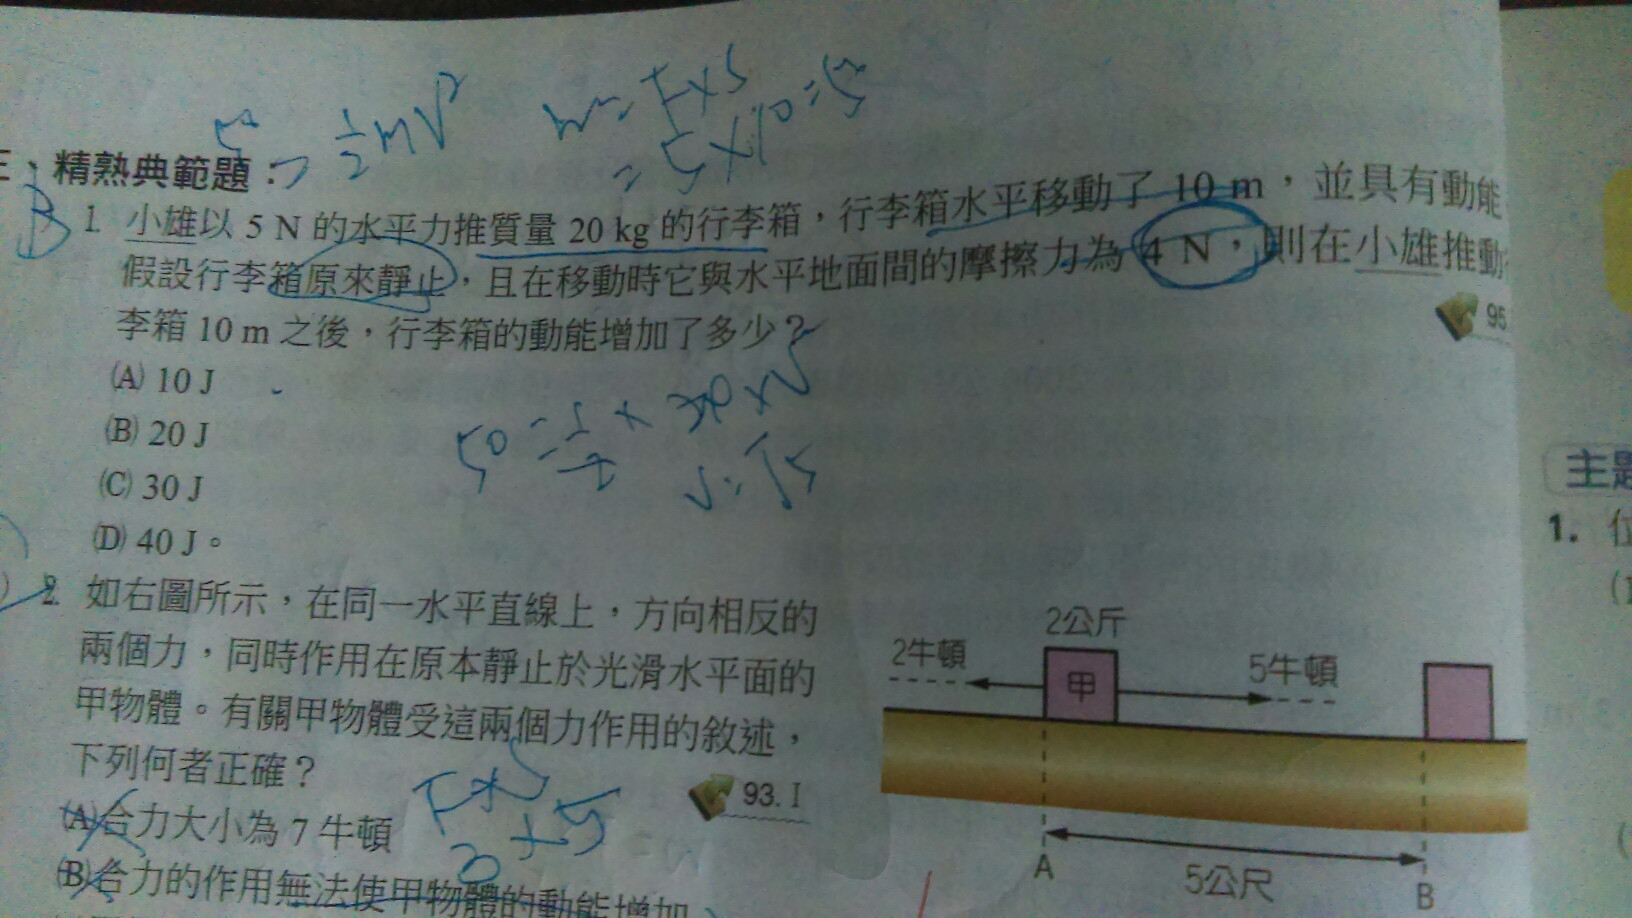 5 = ½mV² W = F×S
= 5×10 = 5
三、精熟典範題：
B 1. 小雄以 5 N 的水平力推質量 20 kg 的行李箱，行李箱水平移動了 10 m，並具有動能
假設行李箱原來靜止，且在移動時它與水平地面間的摩擦力為 4 N，則在小雄推動
李箱 10 m 之後，行李箱的動能增加了多少？
95.
(A) 10 J
(B) 20 J
(C) 30 J
(D) 40 J。
50 = ½ × 20 × V
V = √5
2. 如右圖所示，在同一水平直線上，方向相反的
兩個力，同時作用在原本靜止於光滑水平面的
甲物體。有關甲物體受這兩個力作用的敘述，
下列何者正確？
93. I
F×S
3×5
(A) 合力大小為 7 牛頓
(B) 合力的作用無法使甲物體的動能增加
2公斤
2牛頓
甲
5牛頓
A
5公尺
B
主題
1. 位